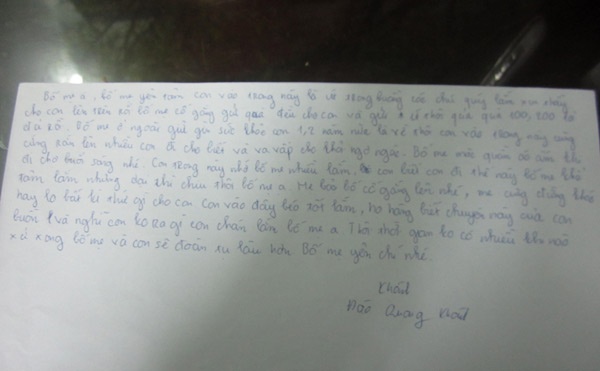 Bố mẹ à, bố mẹ yên tâm con vào trong này là về trong buồng có chú quý lắm xin thầy
cho con lên trên rồi bố mẹ cố gắng gửi quà đều cho con và gửi ít thôi quà quà 100, 200 là
đủ rồi. Bố mẹ ở ngoài giữ gìn sức khỏe con 1, 2 năm nữa là về thôi con vào trong này cũng
cứng rắn lên nhiều con đi cho biết và va vấp cho khỏi ngơ ngác. Bố mẹ mặc quần áo ấm khi
đi chợ buổi sáng nhé. Con trong này nhớ bố mẹ nhiều lắm, con biết con đi thế này bố mẹ khổ
tâm lắm nhưng dại thì chịu thôi bố mẹ ạ. Mẹ bảo bố cố gắng lên nhé, mẹ cũng đừng khóc
hay lo bất kì thứ gì cho con Con vào đây béo tốt lắm, họ hàng biết chuyện này của con
buồn và nghĩ con ko ra gì con chán lắm bố mẹ ạ Thôi thời gian ko có nhiều khi nào
xử xong bố mẹ và con sẽ đoàn tụ lâu hơn Bố mẹ yên chí nhé.
Khải
Đào Quang Khải